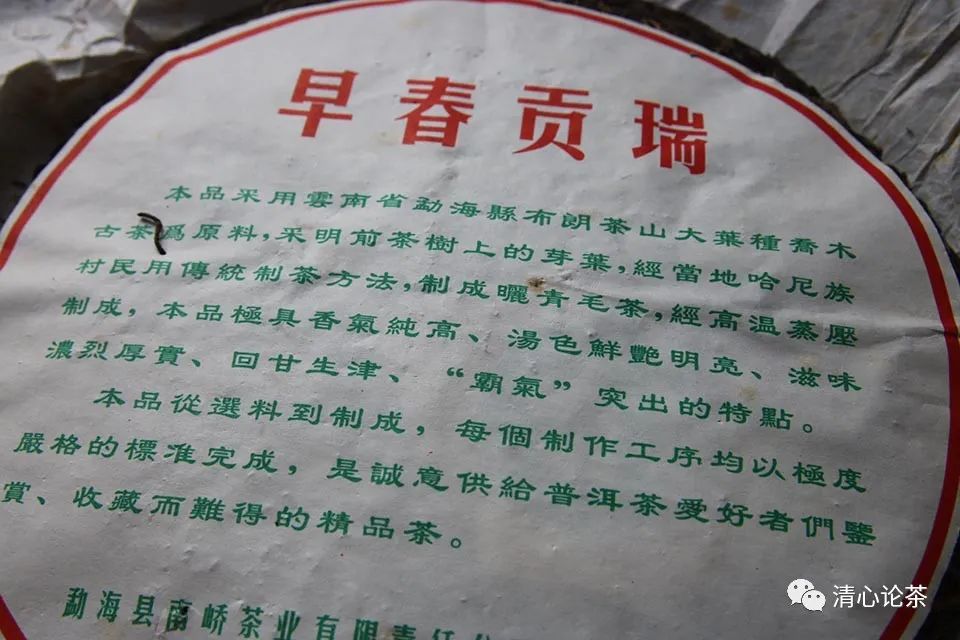 早春贡瑞
本品采用雲南省勐海縣布朗茶山大葉種喬木
古茶爲原料，采明前茶樹上的芽葉，經當地哈尼族
村民用傳統制茶方法，制成曬青毛茶，經高温蒸壓
制成，本品極具香氣純高、湯色鮮艷明亮、滋味
濃烈厚實、回甘生津、“霸氣”突出的特點。
本品從選料到制成，每個制作工序均以極度
嚴格的標准完成，是誠意供給普洱茶愛好者們鑒
賞、收藏而難得的精品茶。
勐海县南峤茶业有限责任
清心论茶